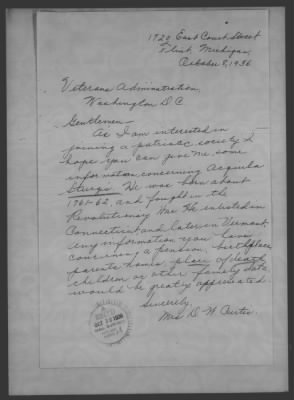 1920 East Court Street
Flint, Michigan,
October 8, 1936
Veterans Administration,
Washington D C
Gentlemen—
As I am interested in
joining a patriotic society I
hope you can give me some
information concerning Acquila
Sturgis. He was born about
1761-62, and fought in the
Revolutionary War. He enlisted in
Connecticut and later in Vermont.
Any information you have
concerning a pension, birthplace,
parents names, place of death
children or other family data
would be greatly appreciated.
Sincerely,
Mrs D. W.
OCT 1936